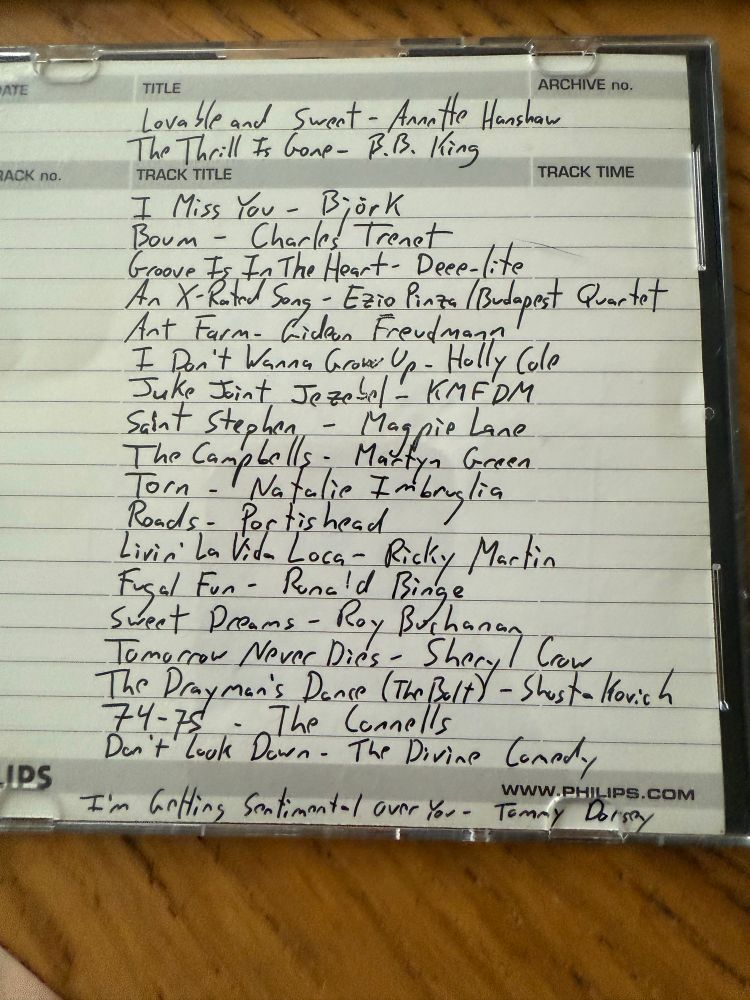 ATE TITLE ARCHIVE no.
Lovable and Sweet - Annette Hanshaw
The Thrill Is Gone - B.B. King
RACK no. TRACK TITLE TRACK TIME
I Miss You - Björk
Boum - Charles Trenet
Groove Is In The Heart - Deee-lite
An X-Rated Song - Ezio Pinza/Budapest Quartet
Ant Farm - Gideon Freudmann
I Don't Wanna Grow Up - Holly Cole
Juke Joint Jezebel - KMFDM
Saint Stephen - Magpie Lane
The Campbells - Martyn Green
Torn - Natalie Imbruglia
Roads - Portishead
Livin' La Vida Loca - Ricky Martin
Fugal Fun - Ronald Binge
Sweet Dreams - Roy Buchanan
Tomorrow Never Dies - Sheryl Crow
The Drayman's Dance (The Bolt) - Shostakovich
74-75 - The Connells
Don't Look Down - The Divine Comedy
LIPS WWW.PHILIPS.COM
I'm Getting Sentimental Over You - Tommy Dorsey